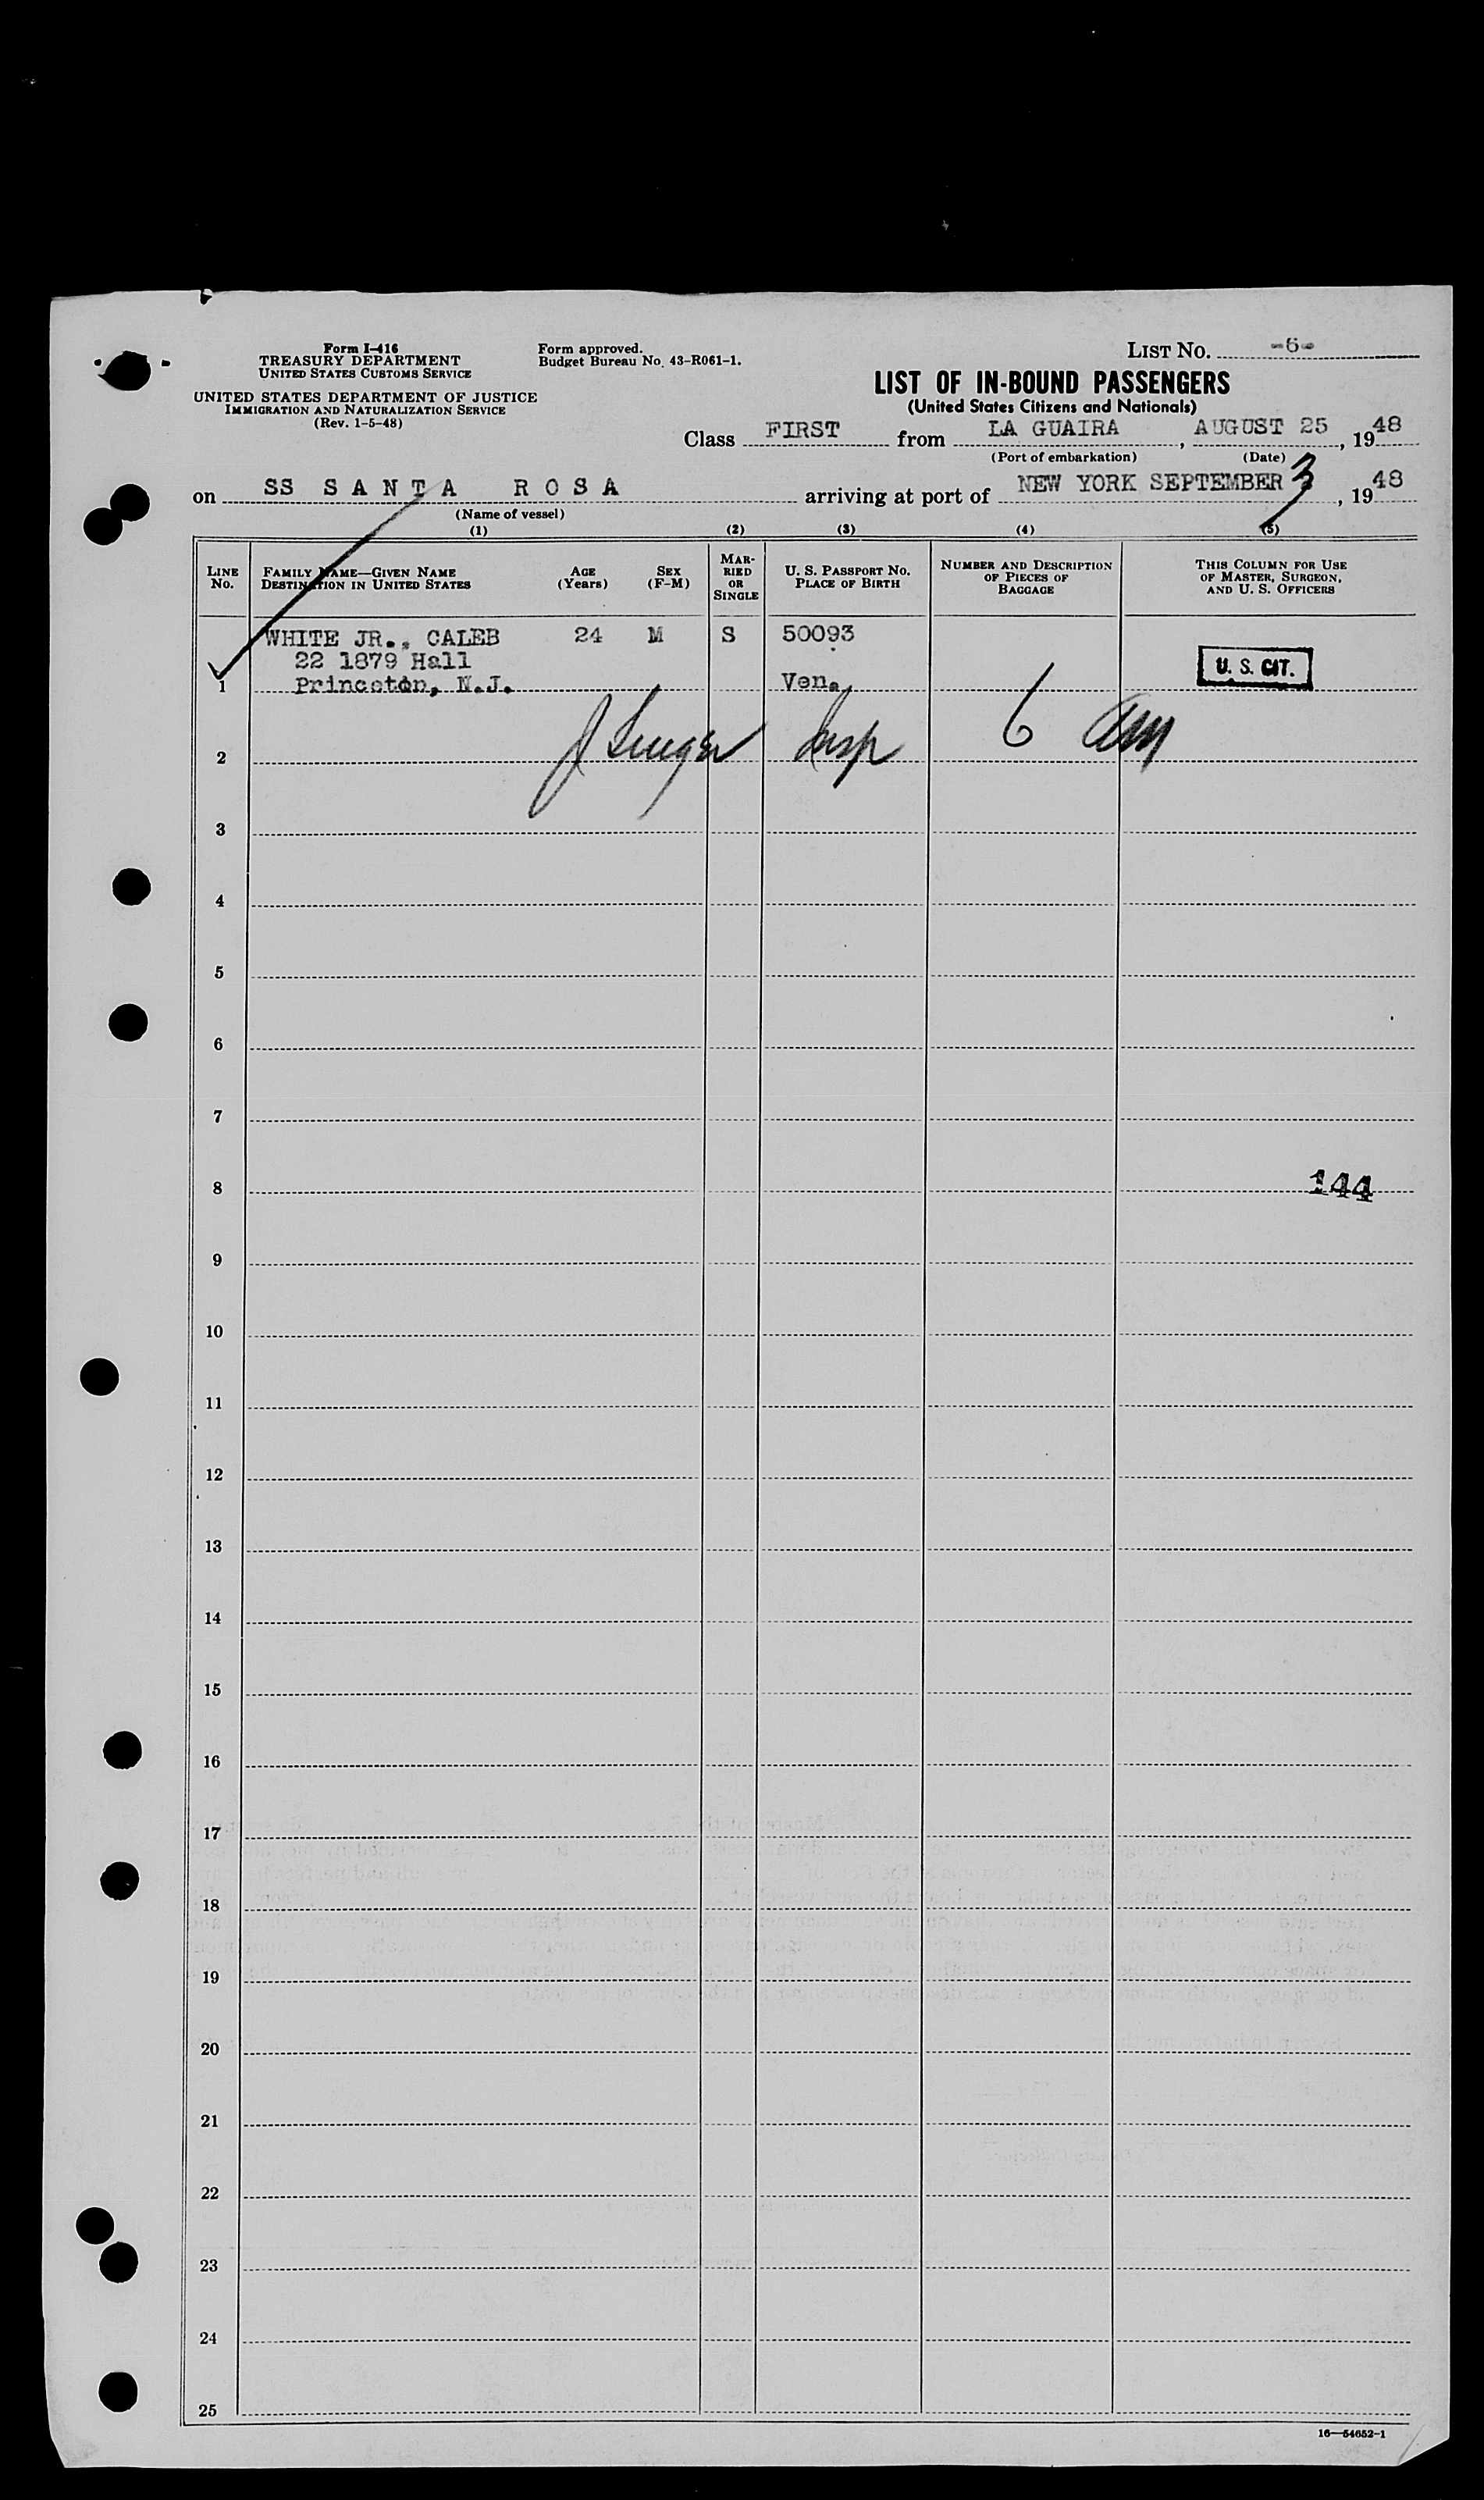 Form I-416
TREASURY DEPARTMENT
UNITED STATES CUSTOMS SERVICE
UNITED STATES DEPARTMENT OF JUSTICE
IMMIGRATION AND NATURALIZATION SERVICE
(Rev. 1-5-48)
Form approved.
Budget Bureau No. 43-R061-1.
LIST NO. -6-
LIST OF IN-BOUND PASSENGERS
(United States Citizens and Nationals)
Class FIRST from LA GUAIRA, AUGUST 25, 1948
(Port of embarkation) (Date)
on SS SANTA ROSA arriving at port of NEW YORK SEPTEMBER 3, 1948
(Name of vessel)
(1) (2) (3) (4) (5)
LINE NO.
FAMILY NAME—GIVEN NAME
DESTINATION IN UNITED STATES
AGE
(Years)
SEX
(F-M)
MAR-
RIED
OR
SINGLE
U. S. PASSPORT NO.
PLACE OF BIRTH
NUMBER AND DESCRIPTION
OF PIECES OF
BAGGAGE
THIS COLUMN FOR USE
OF MASTER, SURGEON,
AND U. S. OFFICERS
WHITE JR., CALEB 24 M S 50093
22 1879 Hall
U. S. CIT.
1 Princeton, N.J. Ven.
Insp 6 am
2
3
4
5
6
7
8 144
9
10
11
12
13
14
15
16
17
18
19
20
21
22
23
24
25
16—54652-1